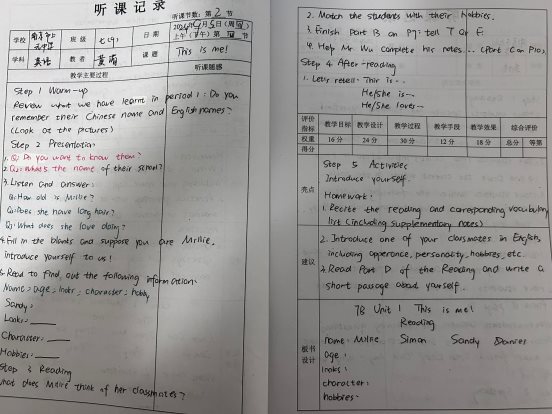 听课记录
听课节数: 第 2 节
学校
班级 七(9)
日期
上午(下午)第 节
学科 英语
教者
课题 This is me!
教学主要过程
听课随感
Step 1 Warm-up
Review what we have learnt in period 1: Do you
remember their Chinese name and English names?
(Look at the pictures)
Step 2 Presentation
1. Q: Do you want to know them?
2. Q: What's the name of their school?
3. Listen and answer:
Q: How old is Millie?
Q: Does she have long hair?
Q: What does she love doing?
4. Fill in the blanks and suppose you are Millie,
introduce yourself to us!
5. Read to find out the following information:
Name, age, looks, character, hobby
Sandy:
Looks:
Character:
Hobbies:
Step 3 Reading
What does Millie think of her classmates?
2. Match the students with their hobbies.
3. Finish Part B on P9: tell T or F.
4. Help Mr Wu complete his notes... (Part C on P10)
Step 4 After-reading
1. Let's retell: This is...
He/She is...
He/She loves...
评价指标 教学目标 教学设计 教学过程 教学手段 教学效果 综合评价
权重 16分 24分 30分 12分 18分 总分 等第
得分
亮点
Step 5 Activities
Introduce yourself.
Homework:
1. Recite the reading and corresponding vocabulary
list (including supplementary notes)
建议
2. Introduce one of your classmates in English,
including apperance, personality, hobbies, etc.
3. Read Part D of the Reading and write a
short passage about yourself.
板书设计
7B Unit 1 This is me!
Reading
name: Millie Simon Sandy Daniel
age:
looks:
character:
hobbies: